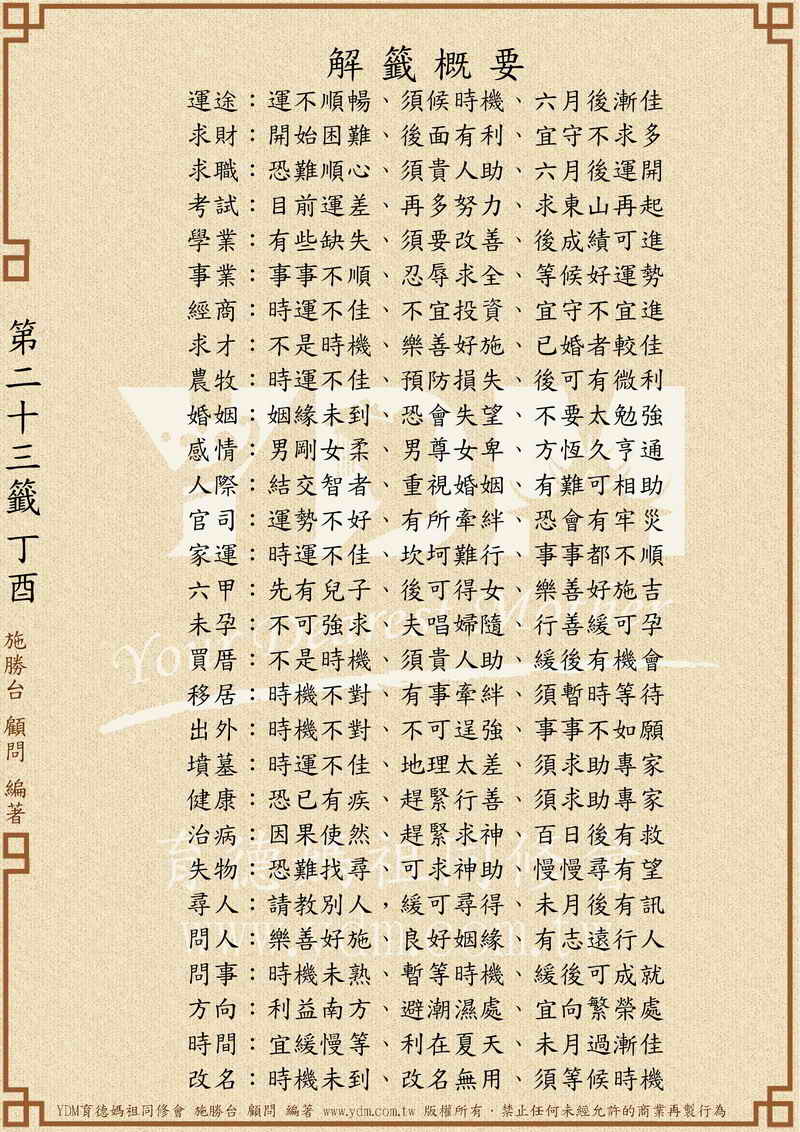 解籤概要
運途：運不順暢、須候時機、六月後漸佳
求財：開始困難、後面有利、宜守不求多
求職：恐難順心、須貴人助、六月後運開
考試：目前運差、再多努力、求東山再起
學業：有些缺失、須要改善、後成績可進
事業：事事不順、忍辱求全、等候好運勢
經商：時運不佳、不宜投資、宜守不宜進
求才：不是時機、樂善好施、已婚者較佳
農牧：時運不佳、預防損失、後可有微利
婚姻：姻緣未到、恐會失望、不要太勉強
感情：男剛女柔、男尊女卑、方恆久亨通
人際：結交智者、重視婚姻、有難可相助
官司：運勢不好、有所牽絆、恐會有牢災
家運：時運不佳、坎坷難行、事事都不順
六甲：先有兒子、後可得女、樂善好施吉
未孕：不可強求、夫唱婦隨、行善緩可孕
買厝：不是時機、須貴人助、緩後有機會
移居：時機不對、有事牽絆、須暫時等待
出外：時機不對、不可逞強、事事不如願
墳墓：時運不佳、地理太差、須求助專家
健康：恐已有疾、趕緊行善、須求助專家
治病：因果使然、趕緊求神、百日後有救
失物：恐難找尋、可求神助、慢慢尋有望
尋人：請教別人，緩可尋得、未月後有訊
問人：樂善好施、良好姻緣、有志遠行人
問事：時機未熟、暫等時機、緩後可成就
方向：利益南方、避潮濕處、宜向繁榮處
時間：宜緩慢等、利在夏天、未月過漸佳
改名：時機未到、改名無用、須等候時機
第二十三籤 丁酉
施勝台 顧問 編著
YDM
Your Dearest Mother
育德媽祖同修會
www.ydm.com.tw
YDM育德媽祖同修會 施勝台 顧問 編著 www.ydm.com.tw 版權所有．禁止任何未經允許的商業再製行為